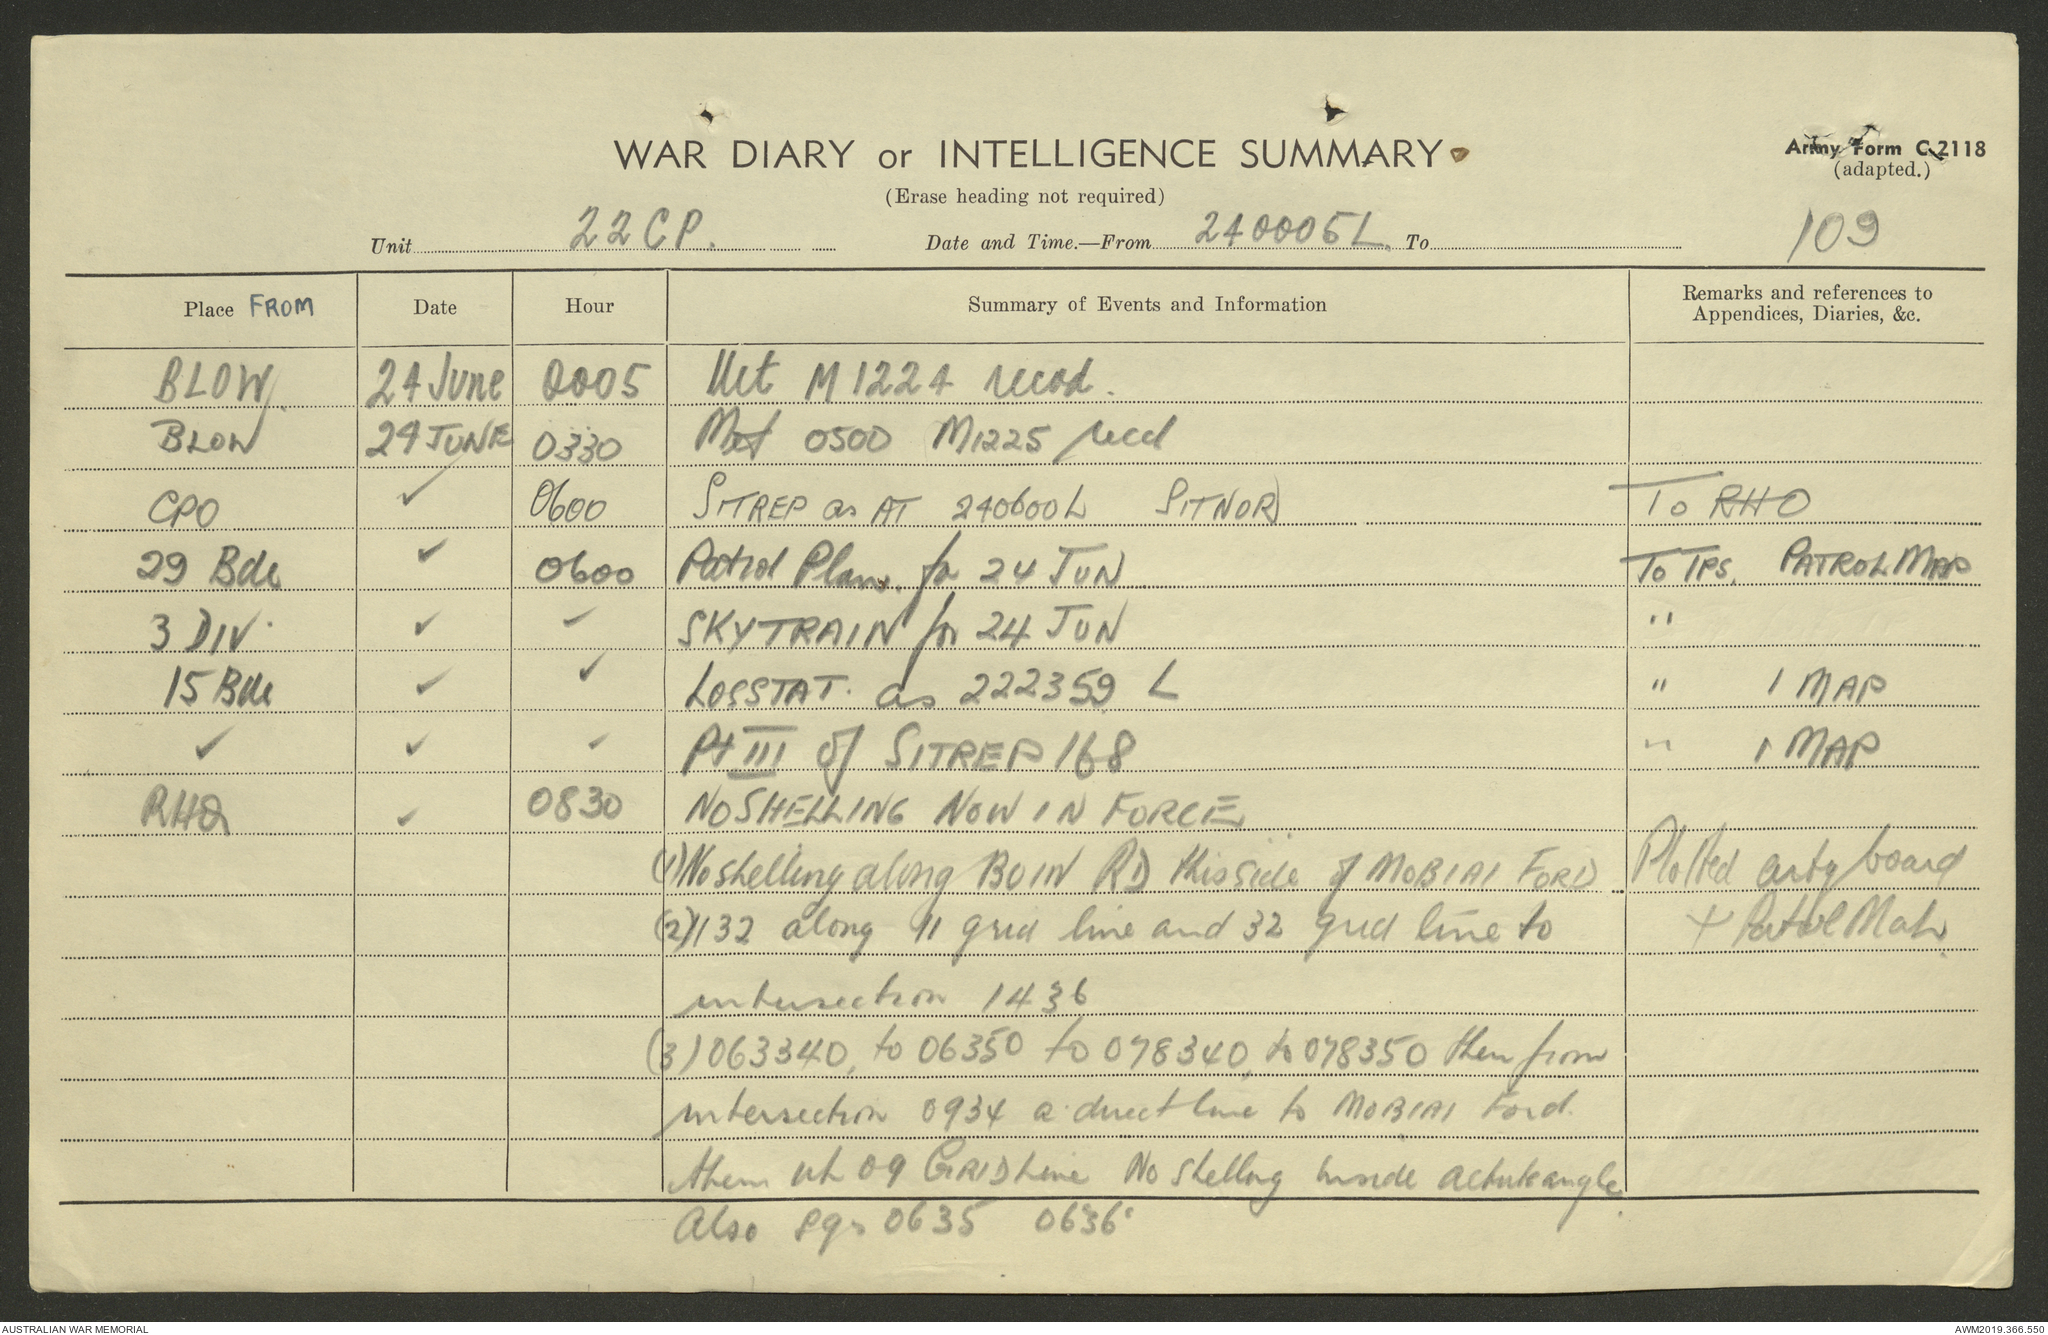 WAR DIARY or INTELLIGENCE SUMMARY
(Erase heading not required)
Army Form C.2118
(adapted.)
109
Unit 22 CP. Date and Time.—From 240005L To
Place FROM Date Hour Summary of Events and Information Remarks and references to Appendices, Diaries, &c.
BLOW 24 June 0005 Met M1224 recod.
BLOW 24 JUNE 0330 Met 0500 M1225 recd
CPO ✓ 0600 SITREP as AT 240600L SITNOR To RHQ
29 Bde ✓ 0600 Patrol Plans for 24 JUN To TPS. PATROL MAP
3 DIV. ✓ ✓ SKYTRAIN for 24 JUN "
15 Bde ✓ ✓ LOSSTAT. as 222359 L " 1 MAP
✓ ✓ ✓ Pt III of SITREP 168 " 1 MAP
RHQ ✓ 0830 NO SHELLING NOW IN FORCE
(1) No shelling along BUIN RD this side of MOBIAI FORD Plotted arty board
(2) 1132 along 11 grid line and 32 grid line to + Patrol Map
intersection 1436
(3) 063340, to 06350 to 078340, to 078350 then from
intersection 0934 a direct line to MOBIAI Ford.
then 09 GRID Line No Shelling inside angle.
Also sqs 0635 0636
AUSTRALIAN WAR MEMORIAL
AWM2019.366.550